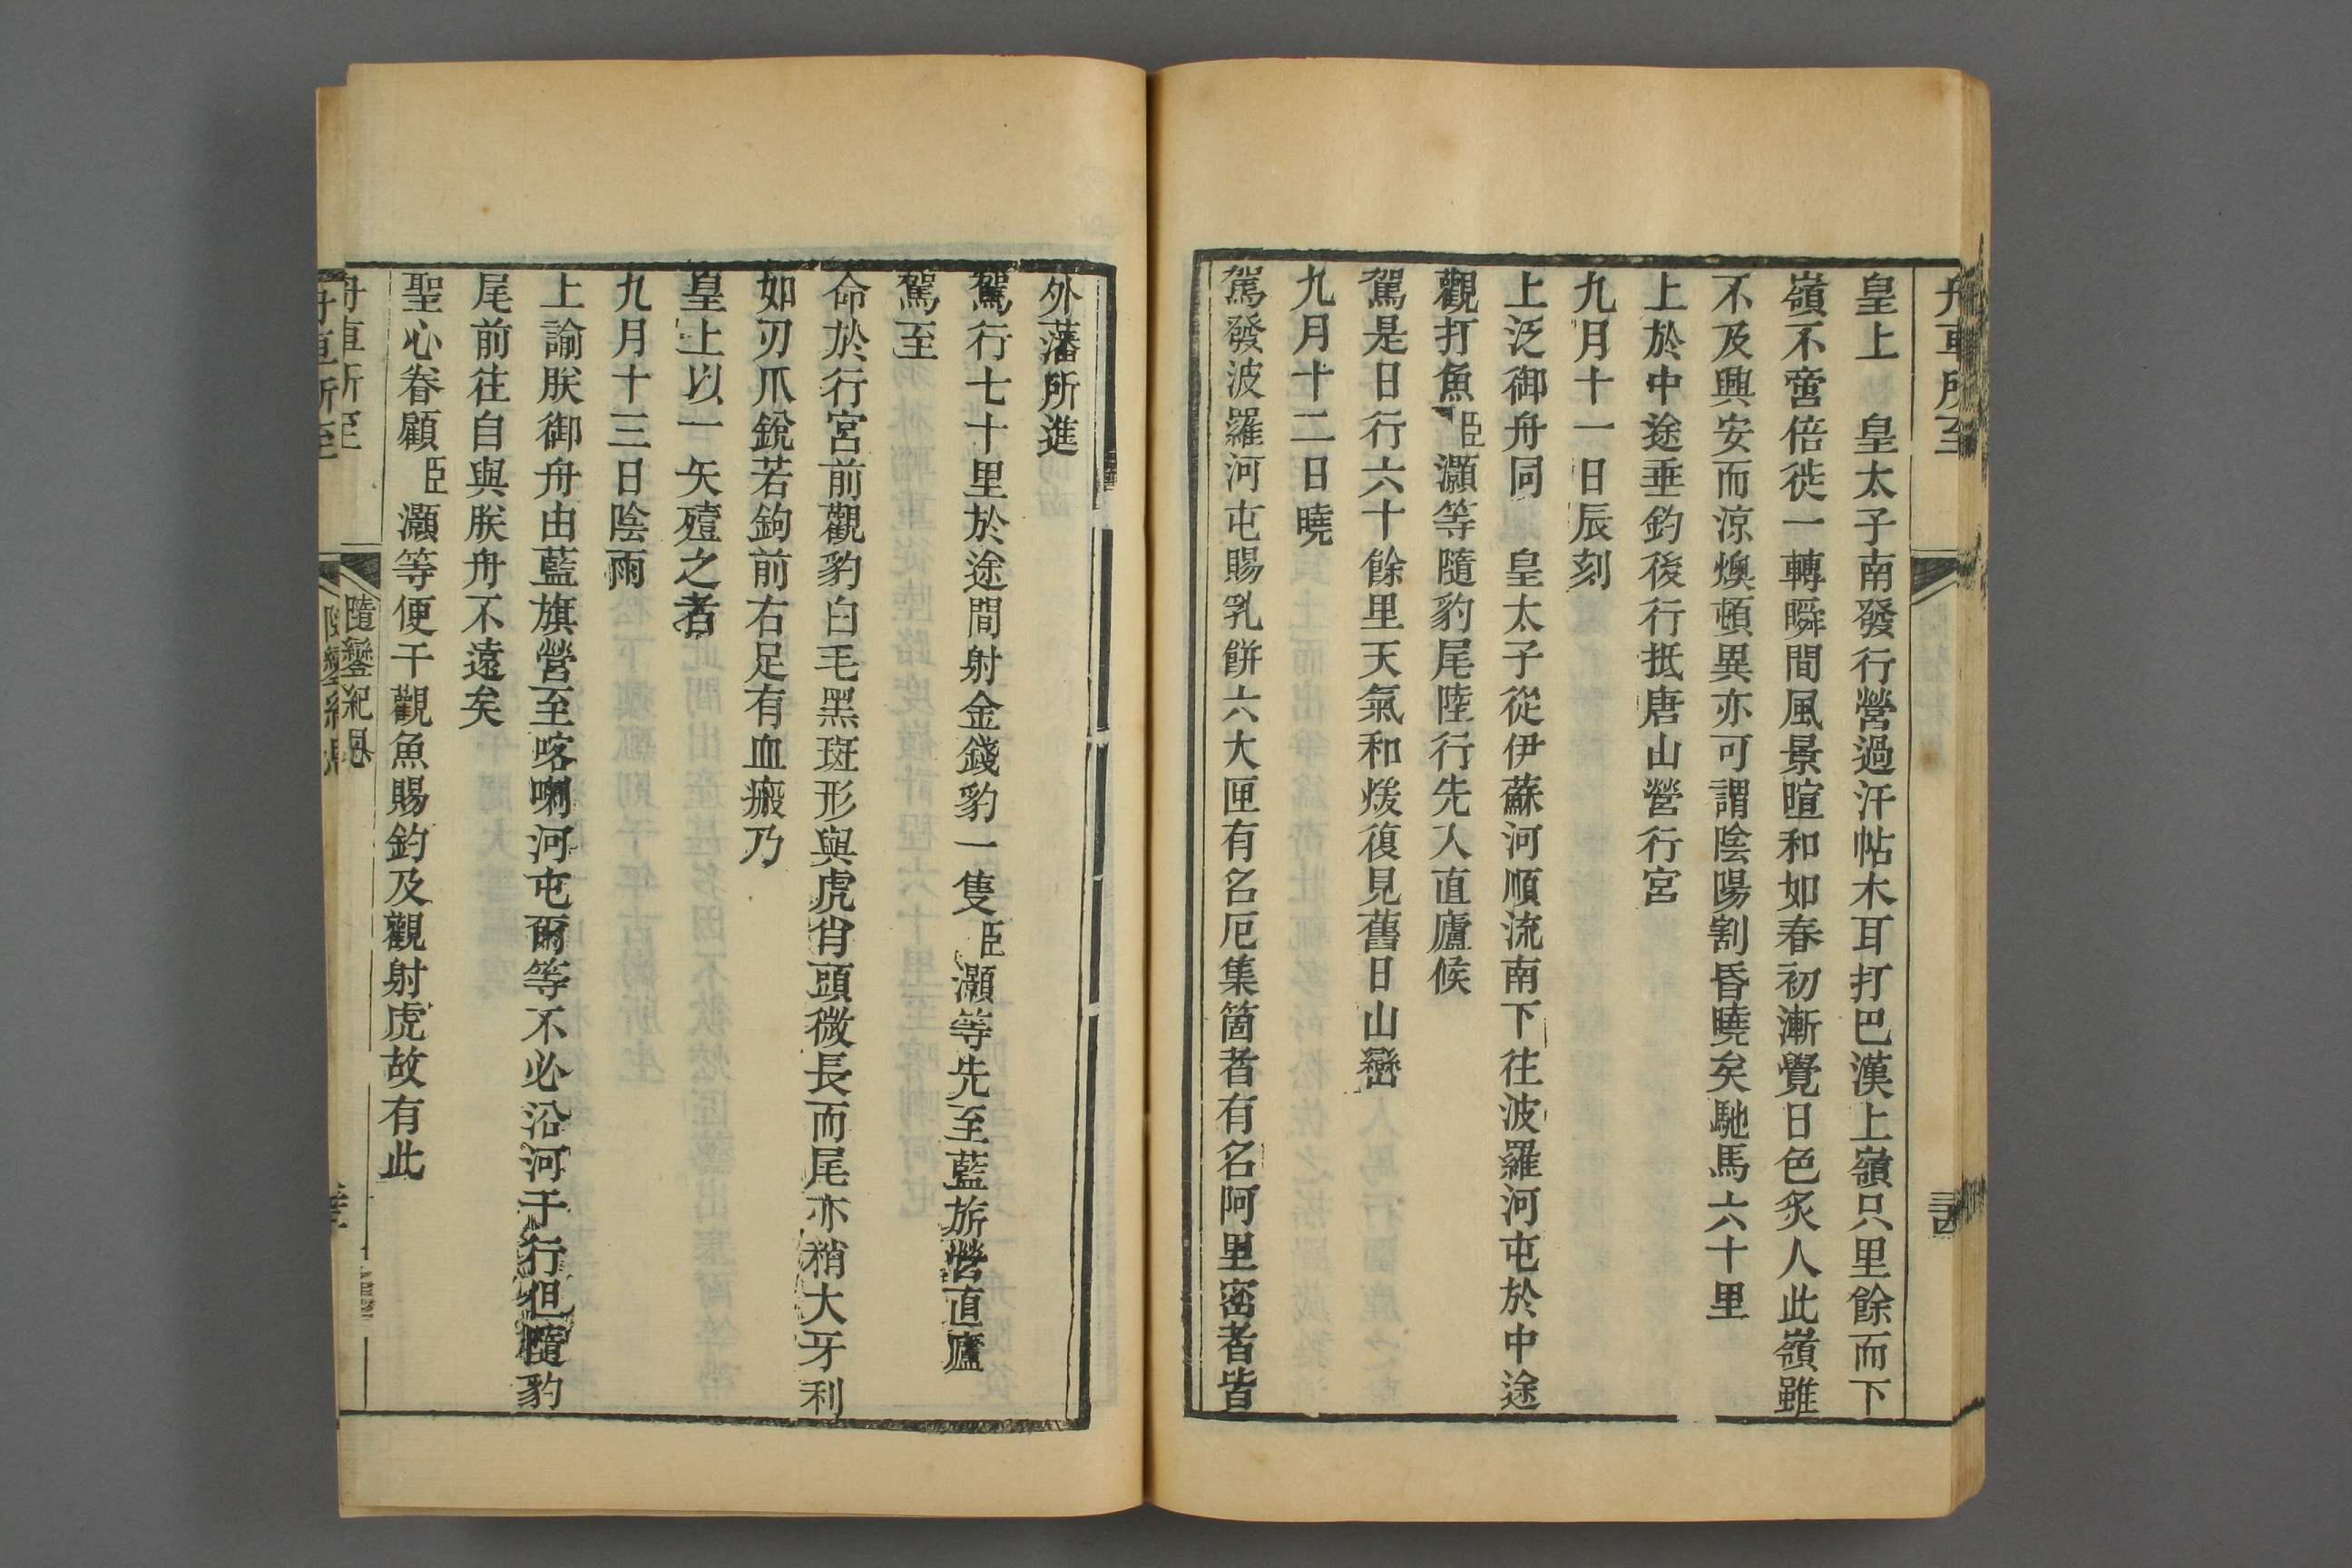 舟車所至
三四
皇上　皇太子南發行營過汗帖木耳打巴漢上嶺只里餘而下
嶺不啻倍徙一轉瞬間風景暄和如春初漸覺日色炙人此嶺雖
不及興安而涼燠頓異亦可謂陰陽割昏曉矣馳馬六十里
上於中途垂釣後行抵唐山營行宮
九月十一日辰刻
上泛御舟同　皇太子從伊蘇河順流南下往波羅河屯於中途
觀打魚臣灝等隨豹尾陸行先入直廬候
駕是日行六十餘里天氣和煖復見舊日山巒
九月十二日曉
駕發波羅河屯賜乳餅六大匣有名厄集箇者有名阿里密者皆
外藩所進
駕行七十里於途間射金錢豹一隻臣灝等先至藍旂營直廬
駕至
命於行宮前觀豹白毛黑斑形與虎肖頭微長而尾亦稍大牙利
如刃爪銳若鉤前右足有血瘢乃
皇上以一矢殪之者
九月十三日陰雨
上諭朕御舟由藍旗營至喀喇河屯爾等不必沿河干行但隨豹
尾前往自與朕舟不遠矣
聖心眷顧臣灝等便干觀魚賜釣及觀射虎故有此
舟車所至
隨鑾紀恩
舟車所至
隨鑾紀恩